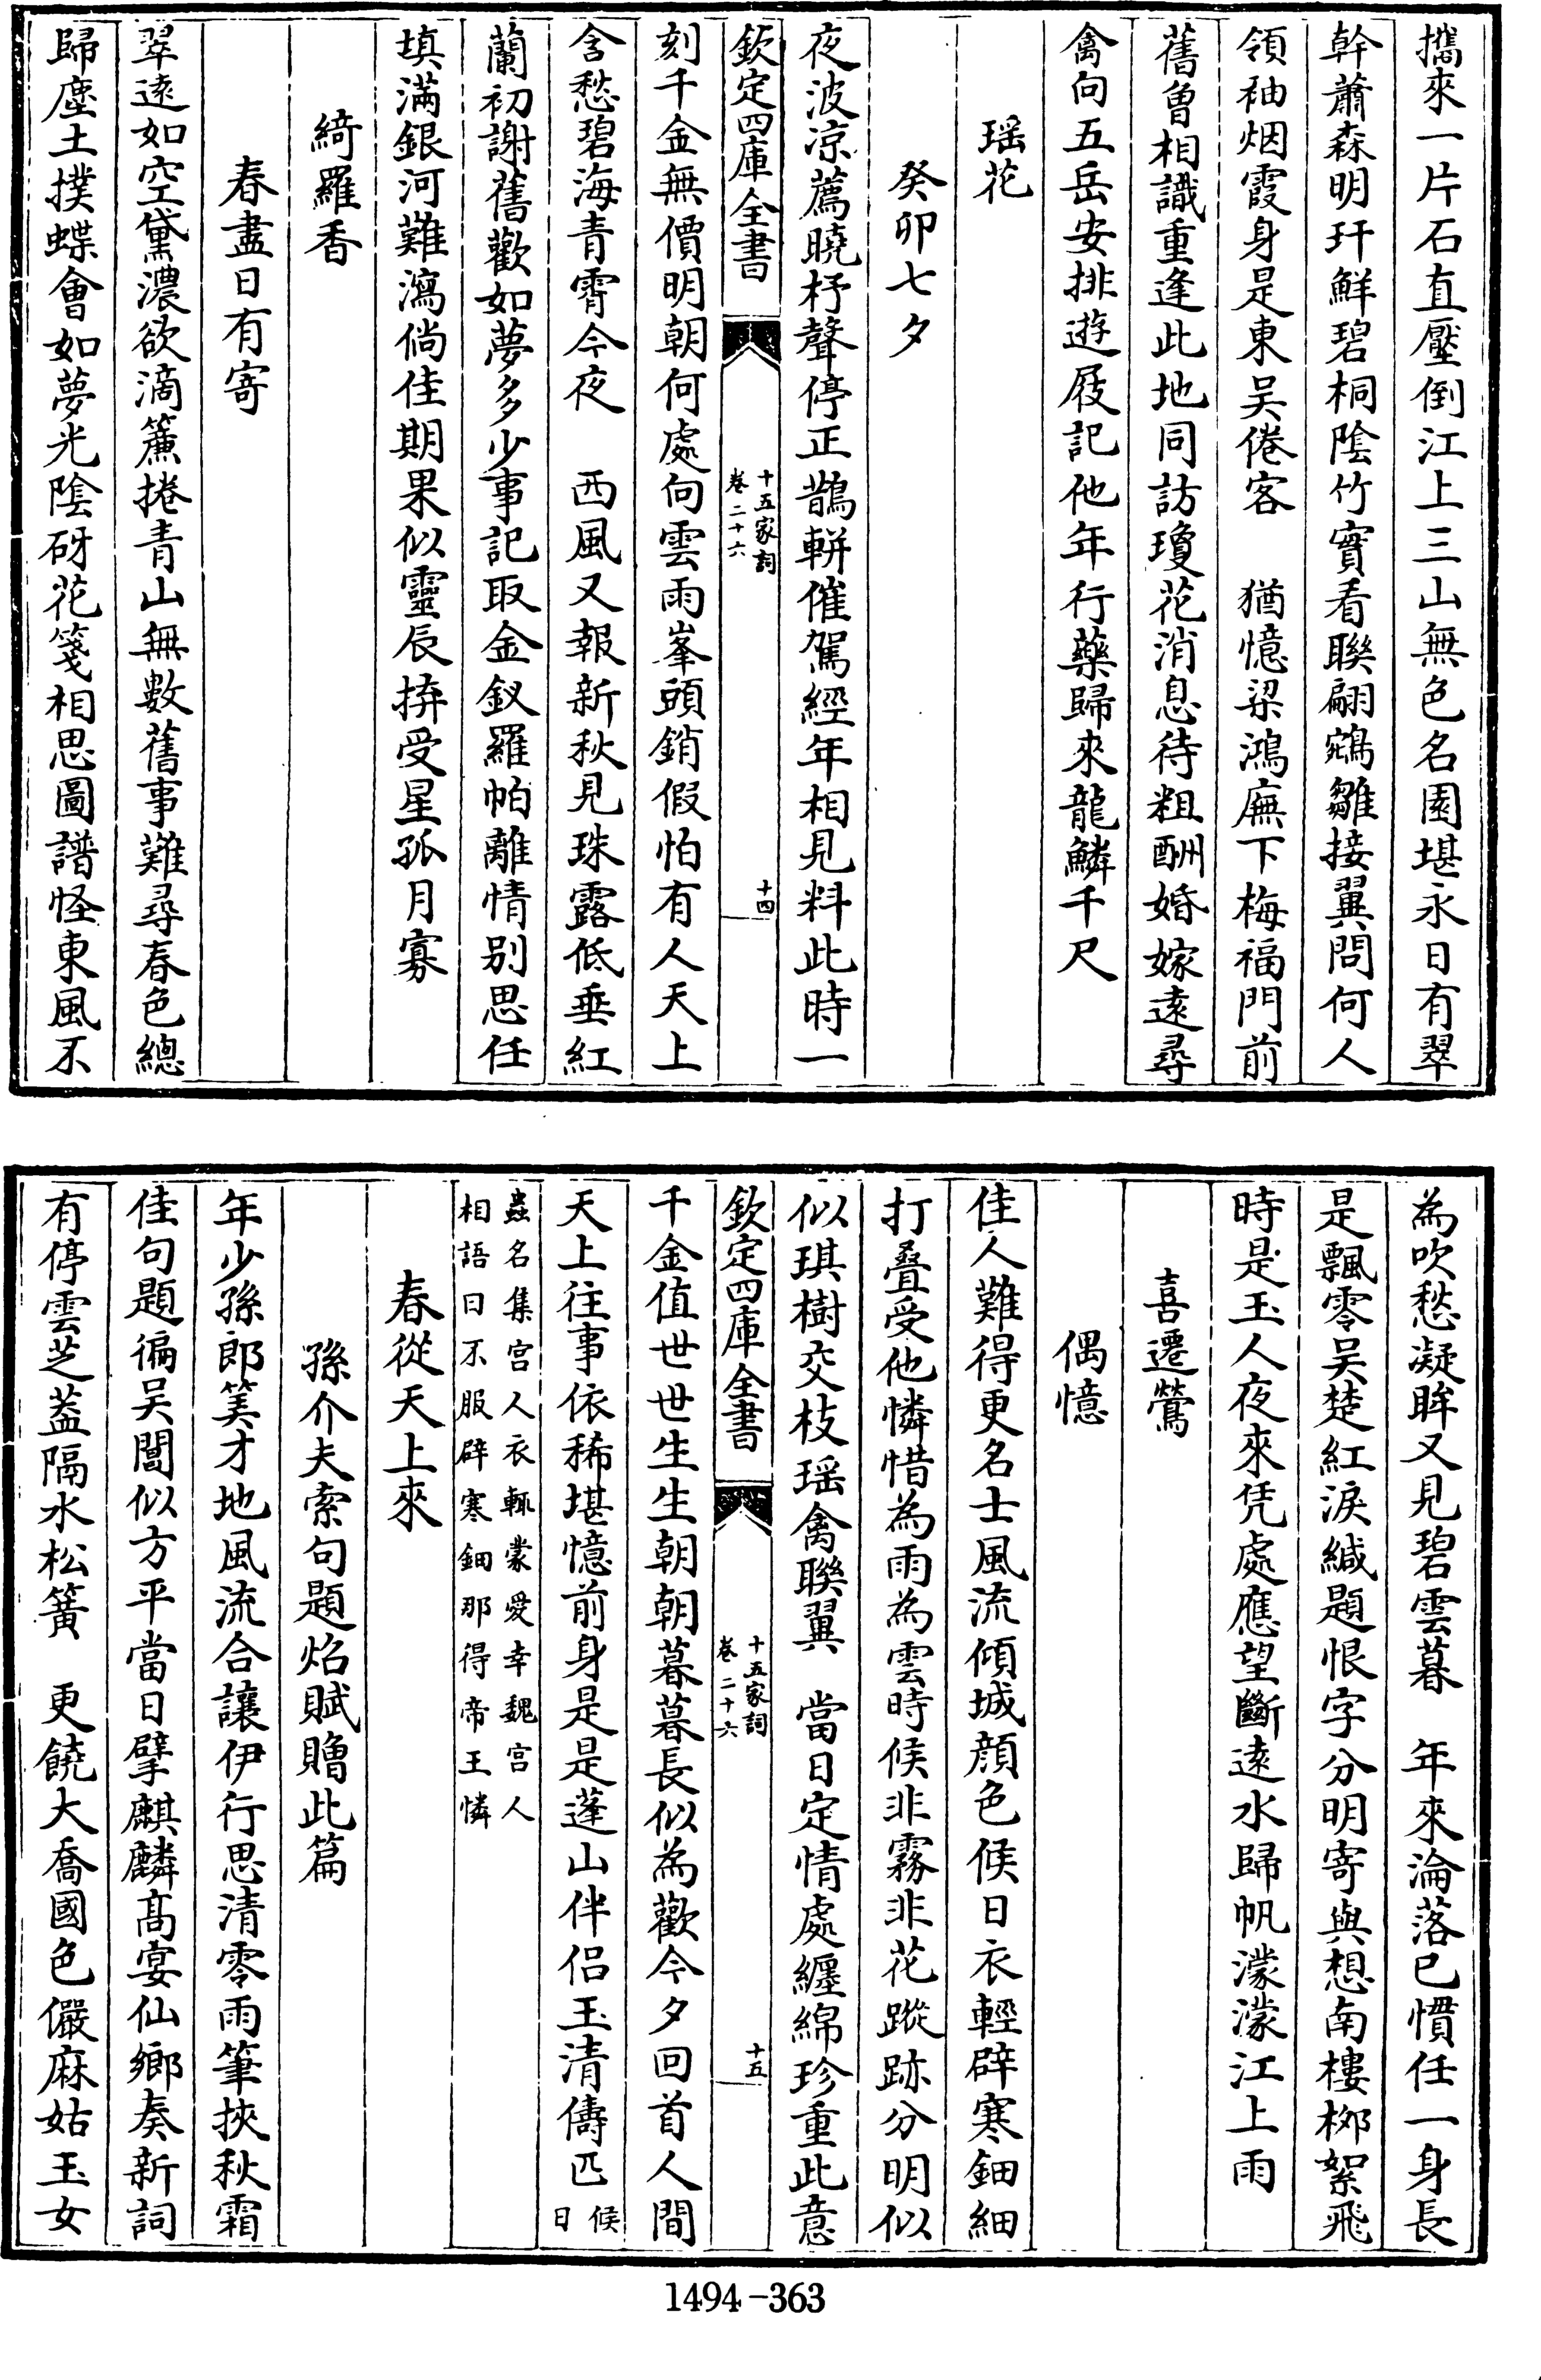 攜來一片石直壓倒江上三山無色名園堪永日有翠
幹蕭森明玕鮮碧桐陰竹實看聯翩鵷雛接翼問何人
領袖烟霞身是東吳倦客　猶憶梁鴻廡下梅福門前
舊曾相識重逢此地同訪瓊花消息待粗酬婚嫁遠尋
禽向五岳安排遊屐記他年行藥歸來龍鱗千尺
瑶花
癸卯七夕
夜波凉薦曉杼聲停正鵲軿催駕經年相見料此時一
欽定四庫全書
十五家詞
卷二十六
十四
刻千金無價明朝何處向雲雨峯頭銷假怕有人天上
含愁碧海青霄今夜　西風又報新秋見珠露低垂紅
蘭初謝舊歡如夢多少事記取金釵羅帕離情别思任
填滿銀河難瀉倘佳期果似靈辰拚受星孤月寡
綺羅香
春盡日有寄
翠遠如空黛濃欲滴簾捲青山無數舊事難尋春色總
歸塵土撲蝶會如夢光陰砑花箋相思圖譜怪東風不
為吹愁凝眸又見碧雲暮　年來淪落已慣任一身長
是飄零吳楚紅淚緘題恨字分明寄與想南樓桞絮飛
時是玉人夜來凭處應望斷遠水歸帆濛濛江上雨
喜遷鶯
偶憶
佳人難得更名士風流傾城顔色候日衣輕辟寒鈿細
打疊受他憐惜為雨為雲時候非霧非花蹤跡分明似
似琪樹交枝瑶禽聯翼　當日定情處纏綿珍重此意
欽定四庫全書
十五家詞
卷二十六
十五
千金值世世生生朝朝暮暮長似為歡今夕回首人間
天上往事依稀堪憶前身是是蓬山伴侶玉清儔匹候
日
蟲名集宫人衣輒蒙愛幸魏宫人
相語曰不服辟寒鈿那得帝王憐
春從天上來
孫介夫索句題焰賦贈此篇
年少孫郎筭才地風流合讓伊行思清零雨筆挾秋霜
佳句題徧吴閶似方平當日擘麒麟髙宴仙鄉奏新詞
有停雲芝葢隔水松簧　更饒大喬國色儼麻姑玉女
1494-363